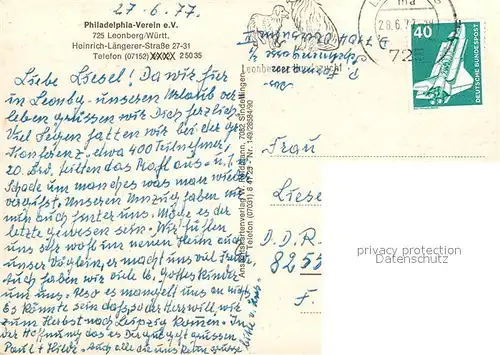 27.6.77.
Philadelphia-Verein e.V.
725 Leonberg/Württ.
Heinrich-Längerer-Straße 27-31
Telefon (07152) XXXX 25035
Liebe Liesel! Da wir hier
in Leonbg. unseren Urlaub ver-
leben grüssen wir Dich herzlich.
Viel Segen hatten wir bei der
Konferenz. etwa 400 Teilnehmer,
20. Brd. hielten das
Schade um manches was man wieder
vergisst. Unseren Umzug haben wir
nun auch hinter uns. Möge es der
letzte gewesen sein. Wir fühlen
uns sehr wohl im neuen Heim auch
unser Vöglein, er macht uns viel Freude.
Auch haben wir viele lb. Gottes Kinder
um uns. Also es mangelt uns an nichts.
Es könnte sein dass, so der Herr will, wir
zum Herbst nach Leipzig kommen. In
der Hoffnung das es Dir gut geht grüssen
Paul + Auch alle die uns kennen grüsse
Ansichtskartenverlag W. 7032 Sindelfingen
Telefon (07031) 8 41 29 · Nr. 149/28584/90
28.6.77
725
Leonberger
40
DEUTSCHE BUNDESPOST
Frau
Liese
D.D.R.
8255
F.
privacy protection
Datenschutz